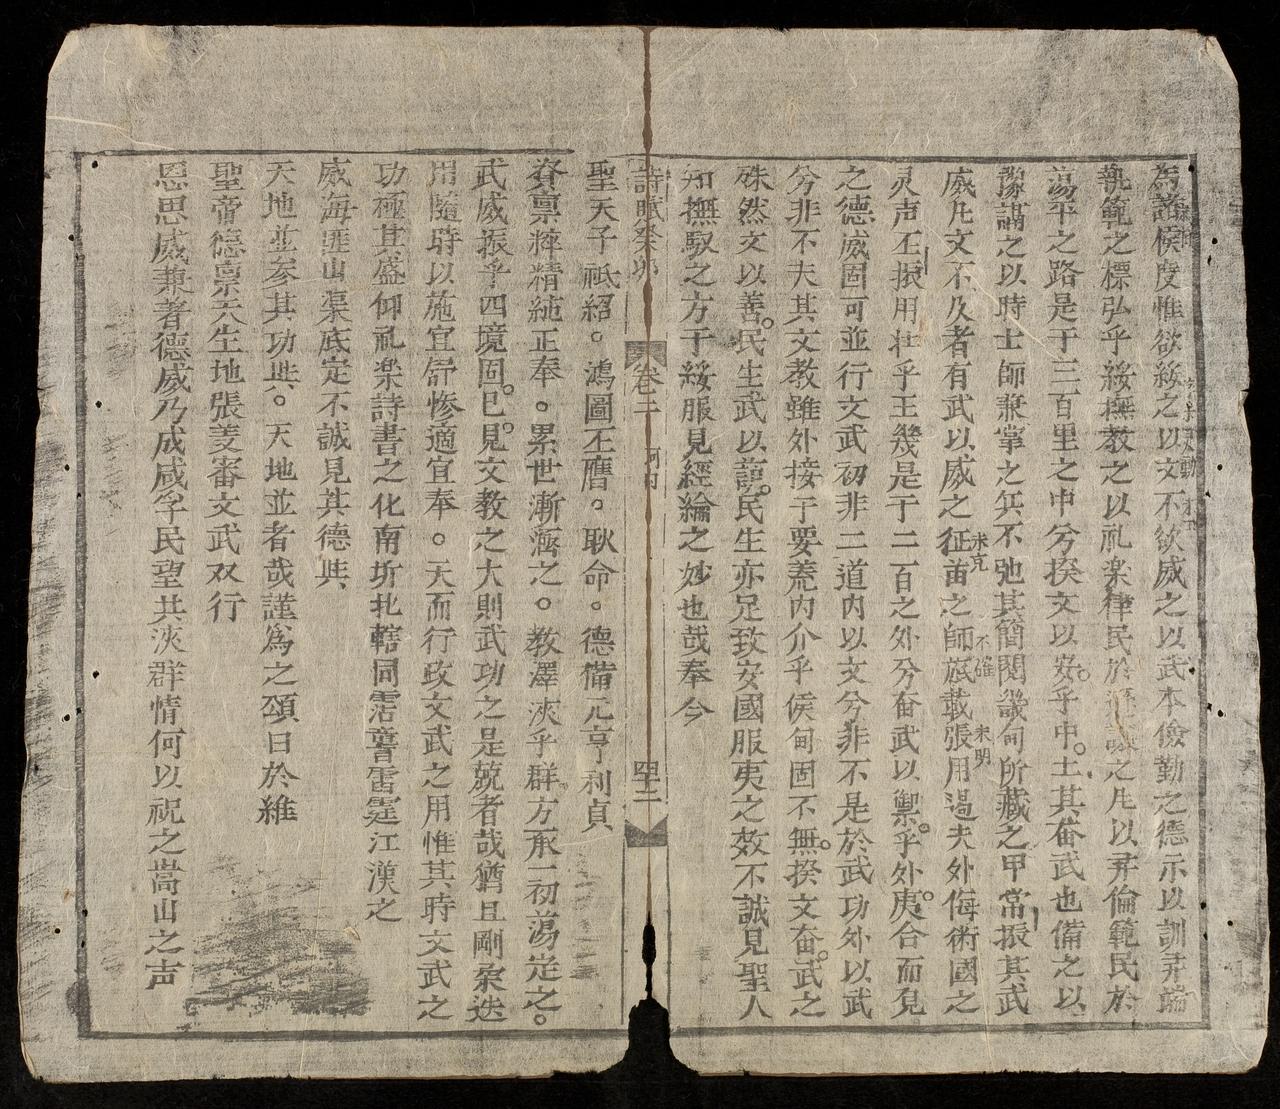 為諸侯度惟欲綏之以文不欲威之以武本儉勤之德示以訓彛倫
執範之標弘乎綏撫教之以礼楽律民於之凡以彛倫範民於
蕩平之路是于三百里之中兮揆文以安乎中土其奋武也備之以
豫謀之以時士師兼掌之兵不弛其簡閱畿甸所藏之甲常振其武
威凡文不及者有武以威之征苗之師旅載張用遏夫外侮術國之
未克
不確
未明
灵声丕振用壮乎王幾是于二百之外兮奋武以禦乎外夷合而見
之德威固可並行文武初非二道内以文兮非不是於武功外以武
兮非不夫其文教雖外接于要荒内介乎侯甸固不無揆文奋武之
殊然文以善民生武以護民生亦足致安國服夷之效不誠見聖人
知撫馭之方于綏服見經綸之妙也哉奉今
詩賦癸卯 卷二 河内 四十二
聖天子祗紹。鴻圖丕膺。耿命。德備元亨利貞
資禀粹精純正奉。累世漸濡之。教澤浹乎群方承一初蕩定之。
武威振乎四境固已見文教之大則武功之是競者哉猶且剛柔迭
用隨時以施宜舒惨適宜奉。天而行政文武之用惟其時文武之
功極其盛仰礼楽詩書之化南圻北轄同霑讋雷霆江漢之
威海匪山渠底定不誠見其德與
天地並参其功與。天地並者哉謹為之頌曰於維
聖帝德禀天生地張姜審文武双行
恩思威兼著德威乃成咸孚民望共浹群情何以祝之嵩山之声